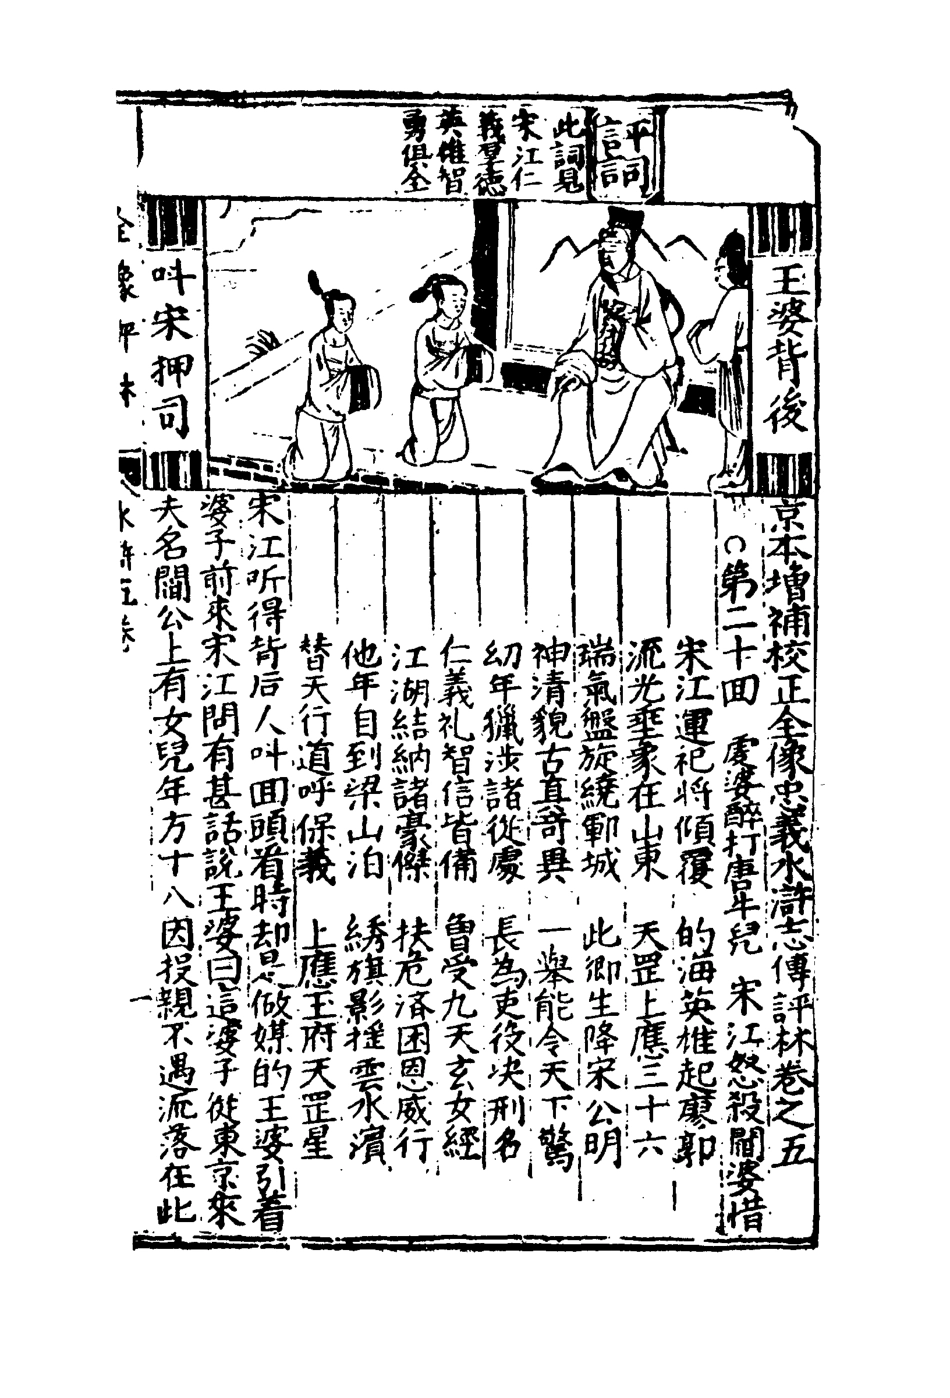 評詞
此詞見
宋江仁
義羣德
英雄智
勇俱全
王婆背後
呌宋押司
京本增補校正全像忠義水滸志傳評林卷之五
第二十回　虔婆醉打唐牛兒　宋江怒殺閻婆惜
宋江運祀將傾覆　的海英雄起寥郭
流光垂象在山東　天罡上應三十六
瑞氣盤旋繞鄆城　此鄉生降宋公明
神清貌古真奇異　一舉能令天下驚
幼年獵涉諸從處　長為吏役决刑名
仁義礼智信皆備　曾受九天玄女經
江湖結納諸豪傑　扶危济困恩威行
他年自到梁山泊　綉旗影揺雲水濱
替天行道呼保義　上應玉府天罡星
宋江听得背后人呌回頭看時却是做媒的王婆引着
婆子前來宋江問有甚話說王婆曰這婆子從東京來
夫名閻公上有女兒年方十八因投親不遇流落在此
全像評林　水滸五卷　一